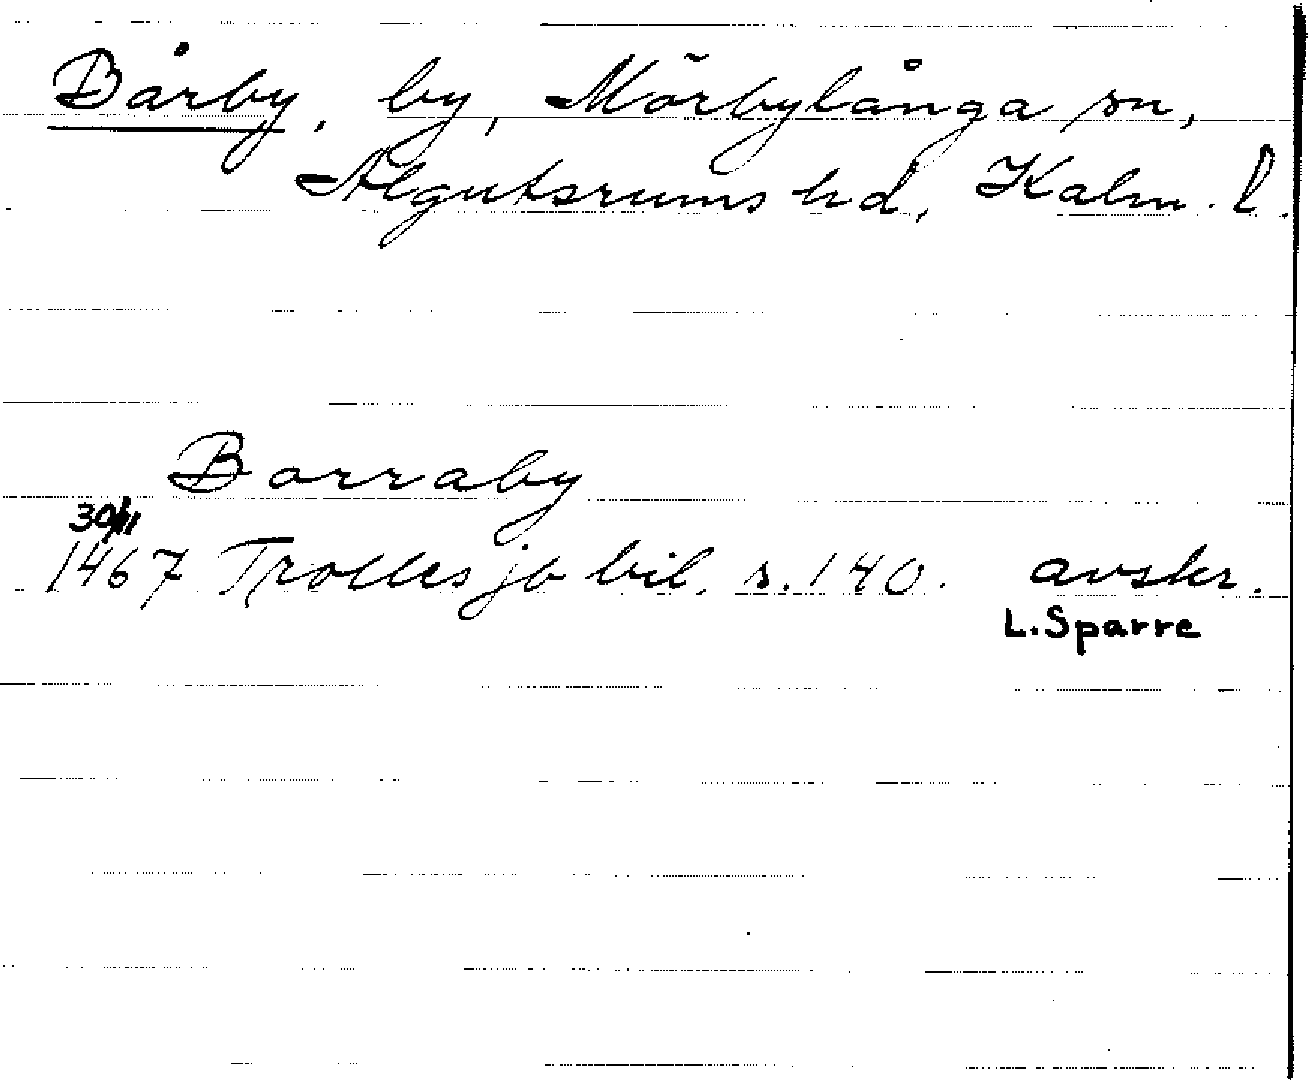 Bårby, by, Mörbylånga sn,
Algutsrums hd, Kalm. l.
Borraby
30/11
1467 Trolles jb bil. s. 140. avskr.
L. Sparre